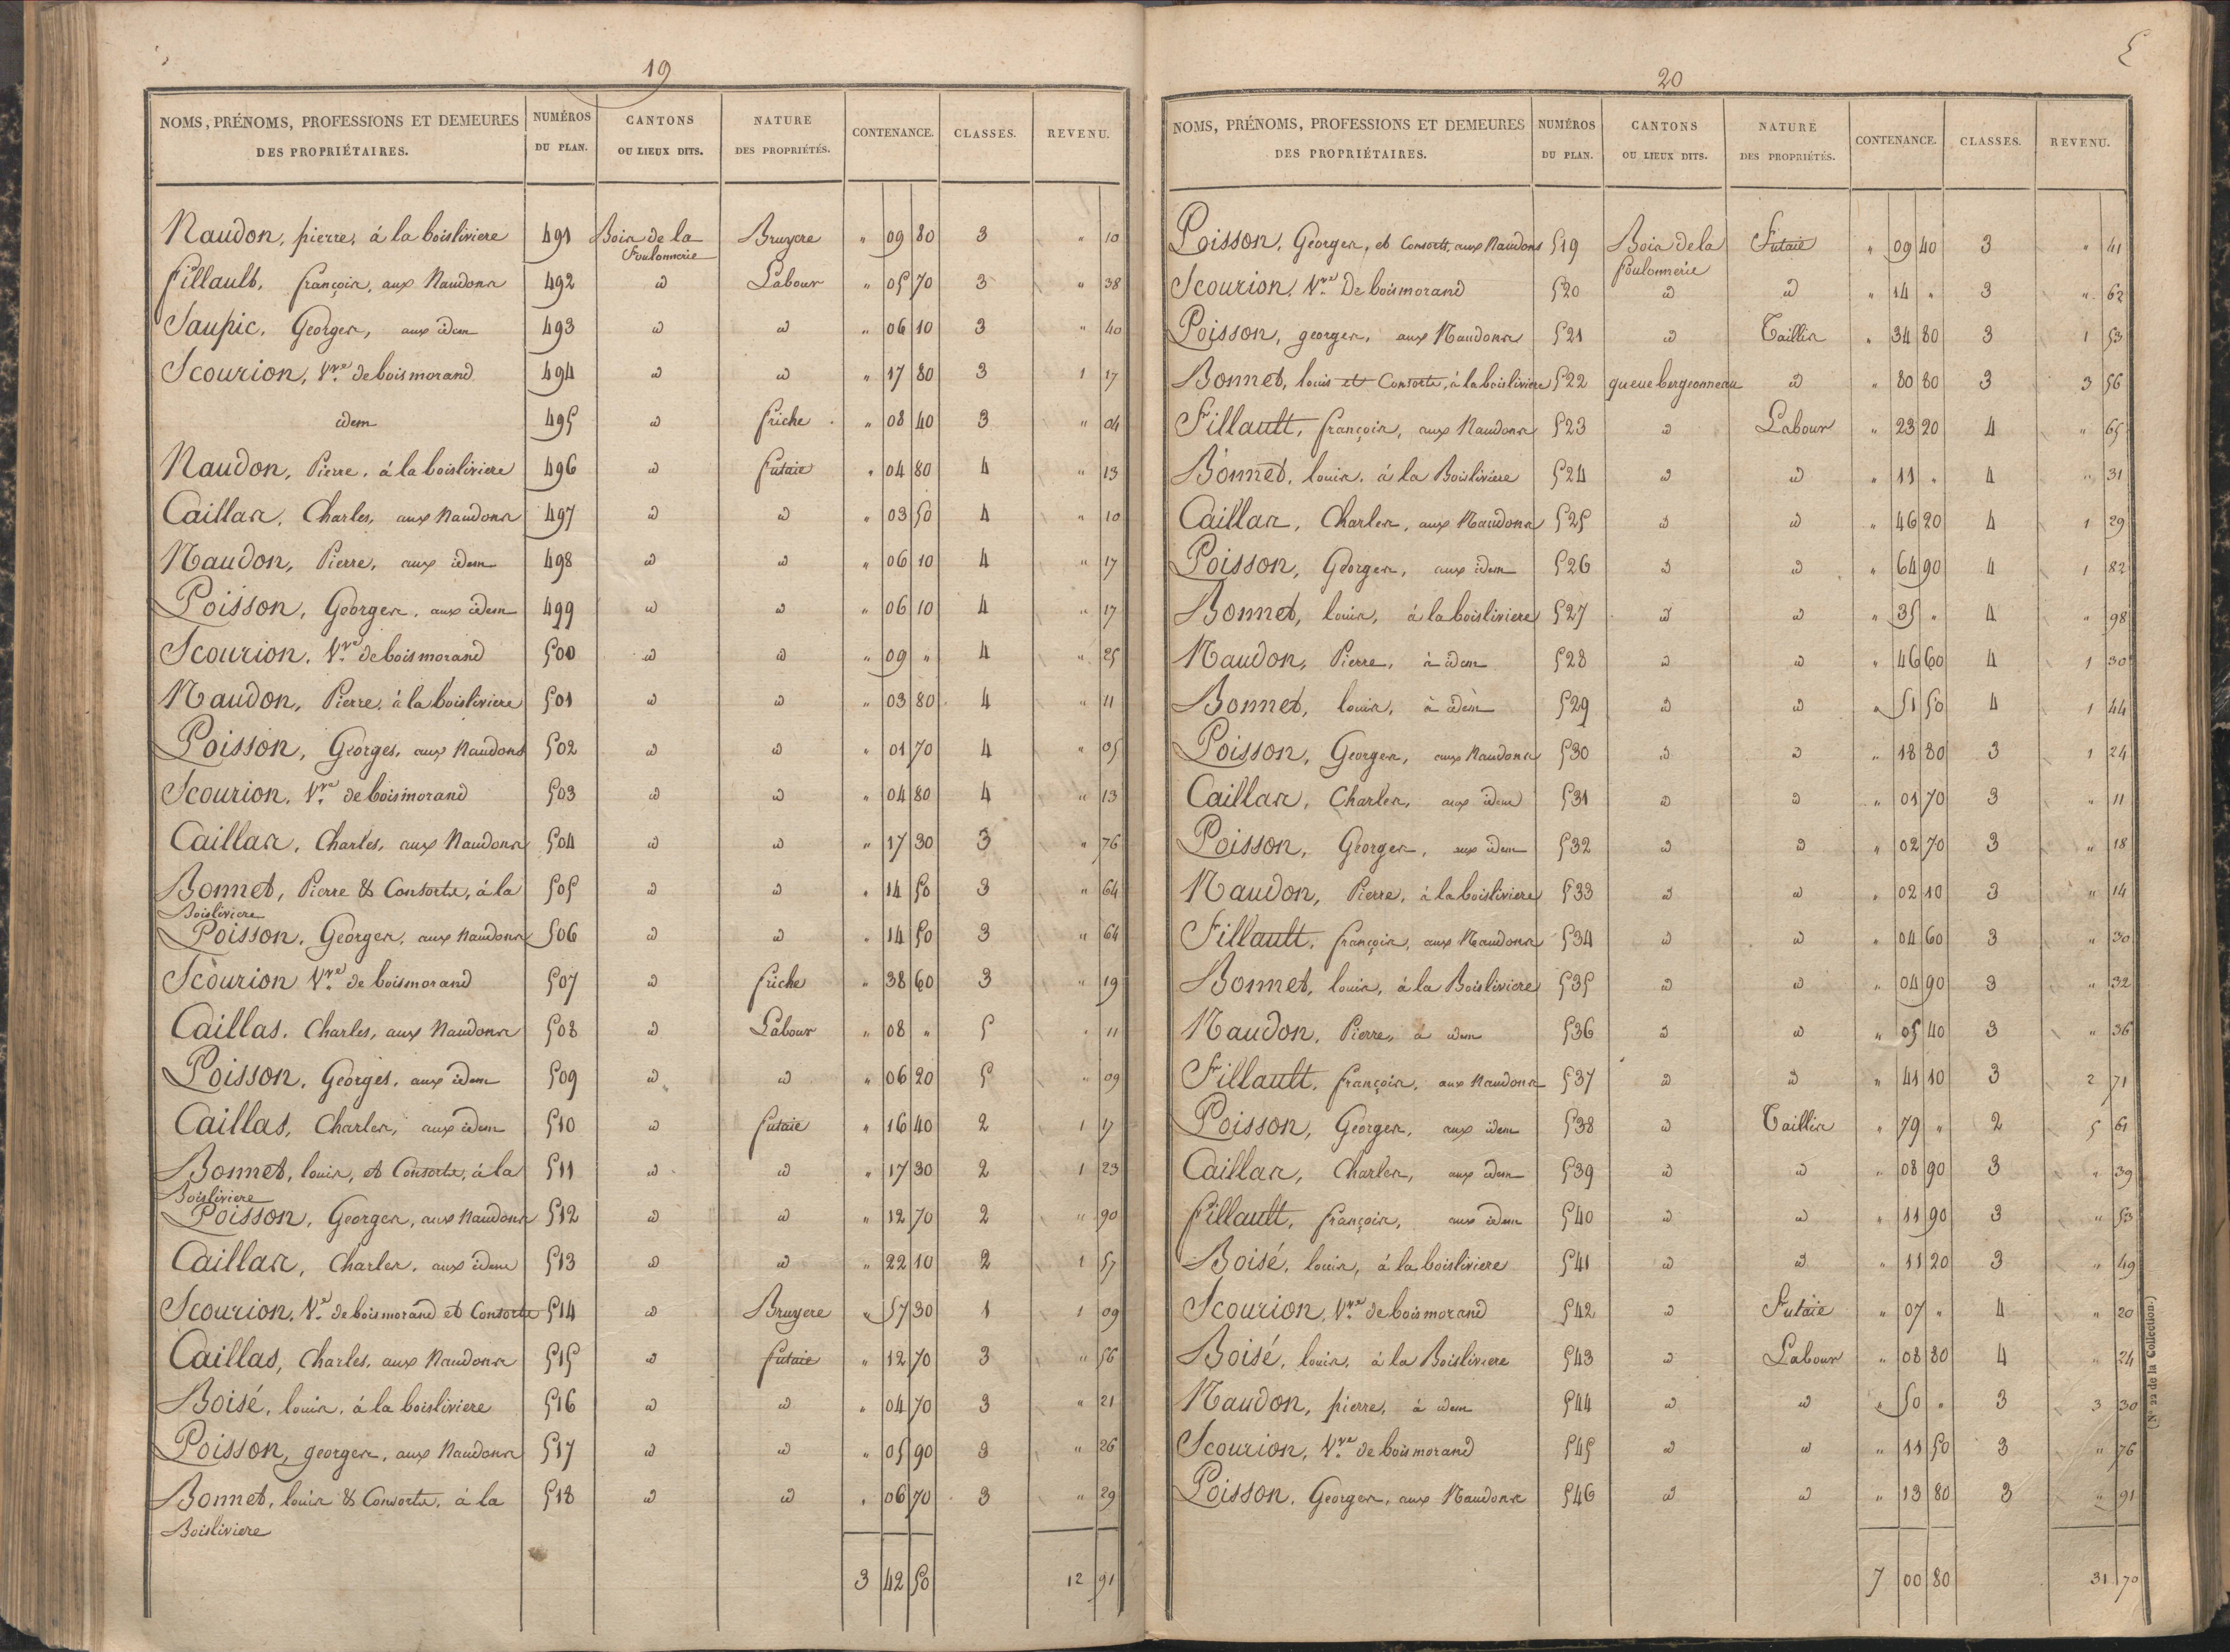 19
NOMS, PRÉNOMS, PROFESSIONS ET DEMEURES DES PROPRIÉTAIRES. NUMÉROS DU PLAN. CANTONS OU LIEUX DITS. NATURE DES PROPRIÉTÉS. CONTENANCE. CLASSES. REVENU.
Naudon, pierre, à la boisliviere 491 Bois de la Foulonnerie Bruyere " 09 80 3 " 10
fillault, françois, aux Naudons 492 id Labour " 05 70 3 " 38
Saupic, Georges, aux idem 493 id id " 06 10 3 " 40
Scourion, Vve de boismorand 494 id id " 17 80 3 1 17
idem 495 id friche " 08 40 3 " 04
Naudon, Pierre, à la boisliviere 496 id futaie " 04 80 4 " 13
Caillas, Charles, aux Naudons 497 id id " 03 50 4 " 10
Naudon, Pierre, aux idem 498 id id " 06 10 4 " 17
Poisson, Georges, aux idem 499 id id " 06 10 4 " 17
Scourion, Vve de boismorand 500 id id " 09 " 4 " 25
Naudon, Pierre, à la boisliviere 501 id id " 03 80 4 " 11
Poisson, Georges, aux Naudons 502 id id " 01 70 4 " 05
Scourion, Vve de boismorand 503 id id " 04 80 4 " 13
Caillas, Charles, aux Naudons 504 id id " 17 30 3 " 76
Bonnet, Pierre & Consorts, à la Boisliviere 505 id id " 14 50 3 " 64
Poisson, Georges, aux Naudons 506 id id " 14 50 3 " 64
Scourion Vve de boismorand 507 id friche " 38 60 3 " 19
Caillas, Charles, aux Naudons 508 id Labour " 08 " 5 " 11
Poisson, Georges, aux idem 509 id id " 06 20 5 " 09
Caillas, Charles, aux idem 510 id futaie " 16 40 2 1 17
Bonnet, louis, et Consorts, à la Boisliviere 511 id id " 17 30 2 1 23
Poisson, Georges, aux Naudons 512 id id " 12 70 2 " 90
Caillas, Charles, aux idem 513 id id " 22 10 2 1 57
Scourion, Ve de boismorand et Consorts 514 id Bruyere " 57 30 1 1 09
Caillas, Charles, aux Naudons 515 id futaie " 12 70 3 " 56
Boisé, louis, à la boisliviere 516 id id " 04 70 3 " 21
Poisson, georges, aux Naudons 517 id id " 05 90 3 " 26
Bonnet, louis & Consorts, à la Boisliviere 518 id id " 06 70 3 " 29
3 42 50 12 91
20
NOMS, PRÉNOMS, PROFESSIONS ET DEMEURES DES PROPRIÉTAIRES. NUMÉROS DU PLAN. CANTONS OU LIEUX DITS. NATURE DES PROPRIÉTÉS. CONTENANCE. CLASSES. REVENU.
Poisson, Georges, et Consorts, aux Naudons 519 Bois de la foulonnerie Futaie " 09 40 3 " 41
Scourion, Vve De boismorand 520 id id " 14 " 3 " 62
Poisson, georges, aux Naudons 521 id Taillis " 34 80 3 1 53
Bonnet, louis et Consorts, à la boisliviere 522 queue bergeonneau id " 80 80 3 3 56
Fillault, françois, aux Naudons 523 id Labour " 23 20 4 " 65
Bonnet, louis, à la Boisliviere 524 id id " 11 " 4 " 31
Caillas, Charles, aux Naudons 525 id id " 46 20 4 1 29
Poisson, Georges, aux idem 526 id id " 64 90 4 1 82
Bonnet, louis, à la boisliviere 527 id id " 35 " 4 " 98
Naudon, Pierre, à idem 528 id id " 46 60 4 1 30
Bonnet, louis, à idem 529 id id " 51 50 4 1 44
Poisson, Georges, aux Naudons 530 id id " 18 80 3 1 24
Caillas, Charles, aux idem 531 id id " 01 70 3 " 11
Poisson, Georges, aux idem 532 id id " 02 70 3 " 18
Naudon, Pierre, à la boisliviere 533 id id " 02 10 3 " 14
Fillault, françois, aux Naudons 534 id id " 04 60 3 " 30
Bonnet, louis, à la Boisliviere 535 id id " 04 90 3 " 32
Naudon, Pierre, à idem 536 id id " 05 40 3 " 36
Fillault, françois, aux Naudons 537 id id " 41 10 3 2 71
Poisson, Georges, aux idem 538 id Taillis " 79 " 2 5 61
Caillas, Charles, aux idem 539 id id " 08 90 3 " 39
fillault, françois, aux idem 540 id id " 11 90 3 " 53
Boisé, louis, à la boisliviere 541 id id " 11 20 3 " 49
Scourion, Vve de boismorand 542 id Futaie " 07 " 4 " 20
Boisé, louis, à la Boisliviere 543 id Labour " 08 80 4 " 24
Naudon, pierre, à idem 544 id id " 50 " 3 3 30
Scourion, Vve de boismorand 545 id id " 11 50 3 " 76
Poisson, Georges, aux Naudons 546 id id " 13 80 3 " 91
7 00 80 31 70
(N° 22 de la Collection.)